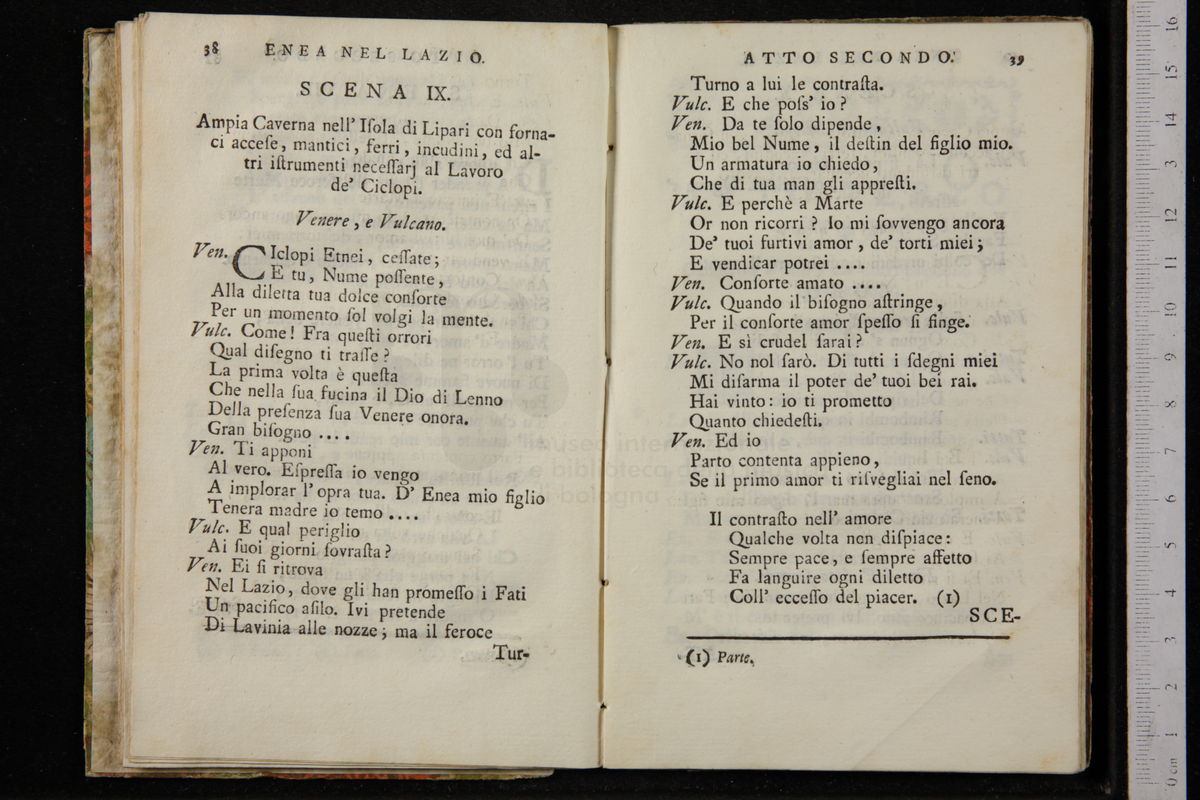 38 ENEA NEL LAZIO.
SCENA IX.
Ampia Caverna nell' Iſola di Lipari con forna-
ci acceſe, mantici, ferri, incudini, ed al-
tri iſtrumenti neceſſarj al Lavoro
de' Ciclopi.
Venere, e Vulcano.
Ven. CIclopi Etnei, ceſſate;
E tu, Nume poſſente,
Alla diletta tua dolce conſorte
Per un momento ſol volgi la mente.
Vulc. Come! Fra queſti orrori
Qual diſegno ti traſſe?
La prima volta è queſta
Che nella ſua fucina il Dio di Lenno
Della preſenza ſua Venere onora.
Gran biſogno ....
Ven. Ti apponi
Al vero. Eſpreſſa io vengo
A implorar l' opra tua. D' Enea mio figlio
Tenera madre io temo ....
Vulc. E qual periglio
Ai ſuoi giorni ſovraſta?
Ven. Ei ſi ritrova
Nel Lazio, dove gli han promeſſo i Fati
Un pacifico aſilo. Ivi pretende
Di Lavinia alle nozze; ma il feroce
Tur-
ATTO SECONDO. 39
Turno a lui le contraſta.
Vulc. E che poſs' io?
Ven. Da te ſolo dipende,
Mio bel Nume, il deſtin del figlio mio.
Un armatura io chiedo,
Che di tua man gli appreſti.
Vulc. E perchè a Marte
Or non ricorri? Io mi ſovvengo ancora
De' tuoi furtivi amor, de' torti miei;
E vendicar potrei ....
Ven. Conſorte amato ....
Vulc. Quando il biſogno aſtringe,
Per il conſorte amor ſpeſſo ſi finge.
Ven. E sì crudel ſarai?
Vulc. No nol ſarò. Di tutti i ſdegni miei
Mi diſarma il poter de' tuoi bei rai.
Hai vinto: io ti prometto
Quanto chiedeſti.
Ven. Ed io
Parto contenta appieno,
Se il primo amor ti riſvegliai nel ſeno.
Il contraſto nell' amore
Qualche volta non diſpiace:
Sempre pace, e ſempre affetto
Fa languire ogni diletto
Coll' ecceſſo del piacer. (1)
SCE-
(1) Parte.
museo internazionale
e biblioteca della musica
di bologna
0 cm 1 2 3 4 5 6 7 8 9 10 11 12 13 14 15 16